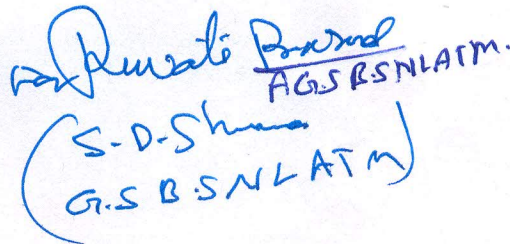 for Rewati Prasad
AGS BSNLATM.
(S-D-Sharma
G.S BSNLATM)